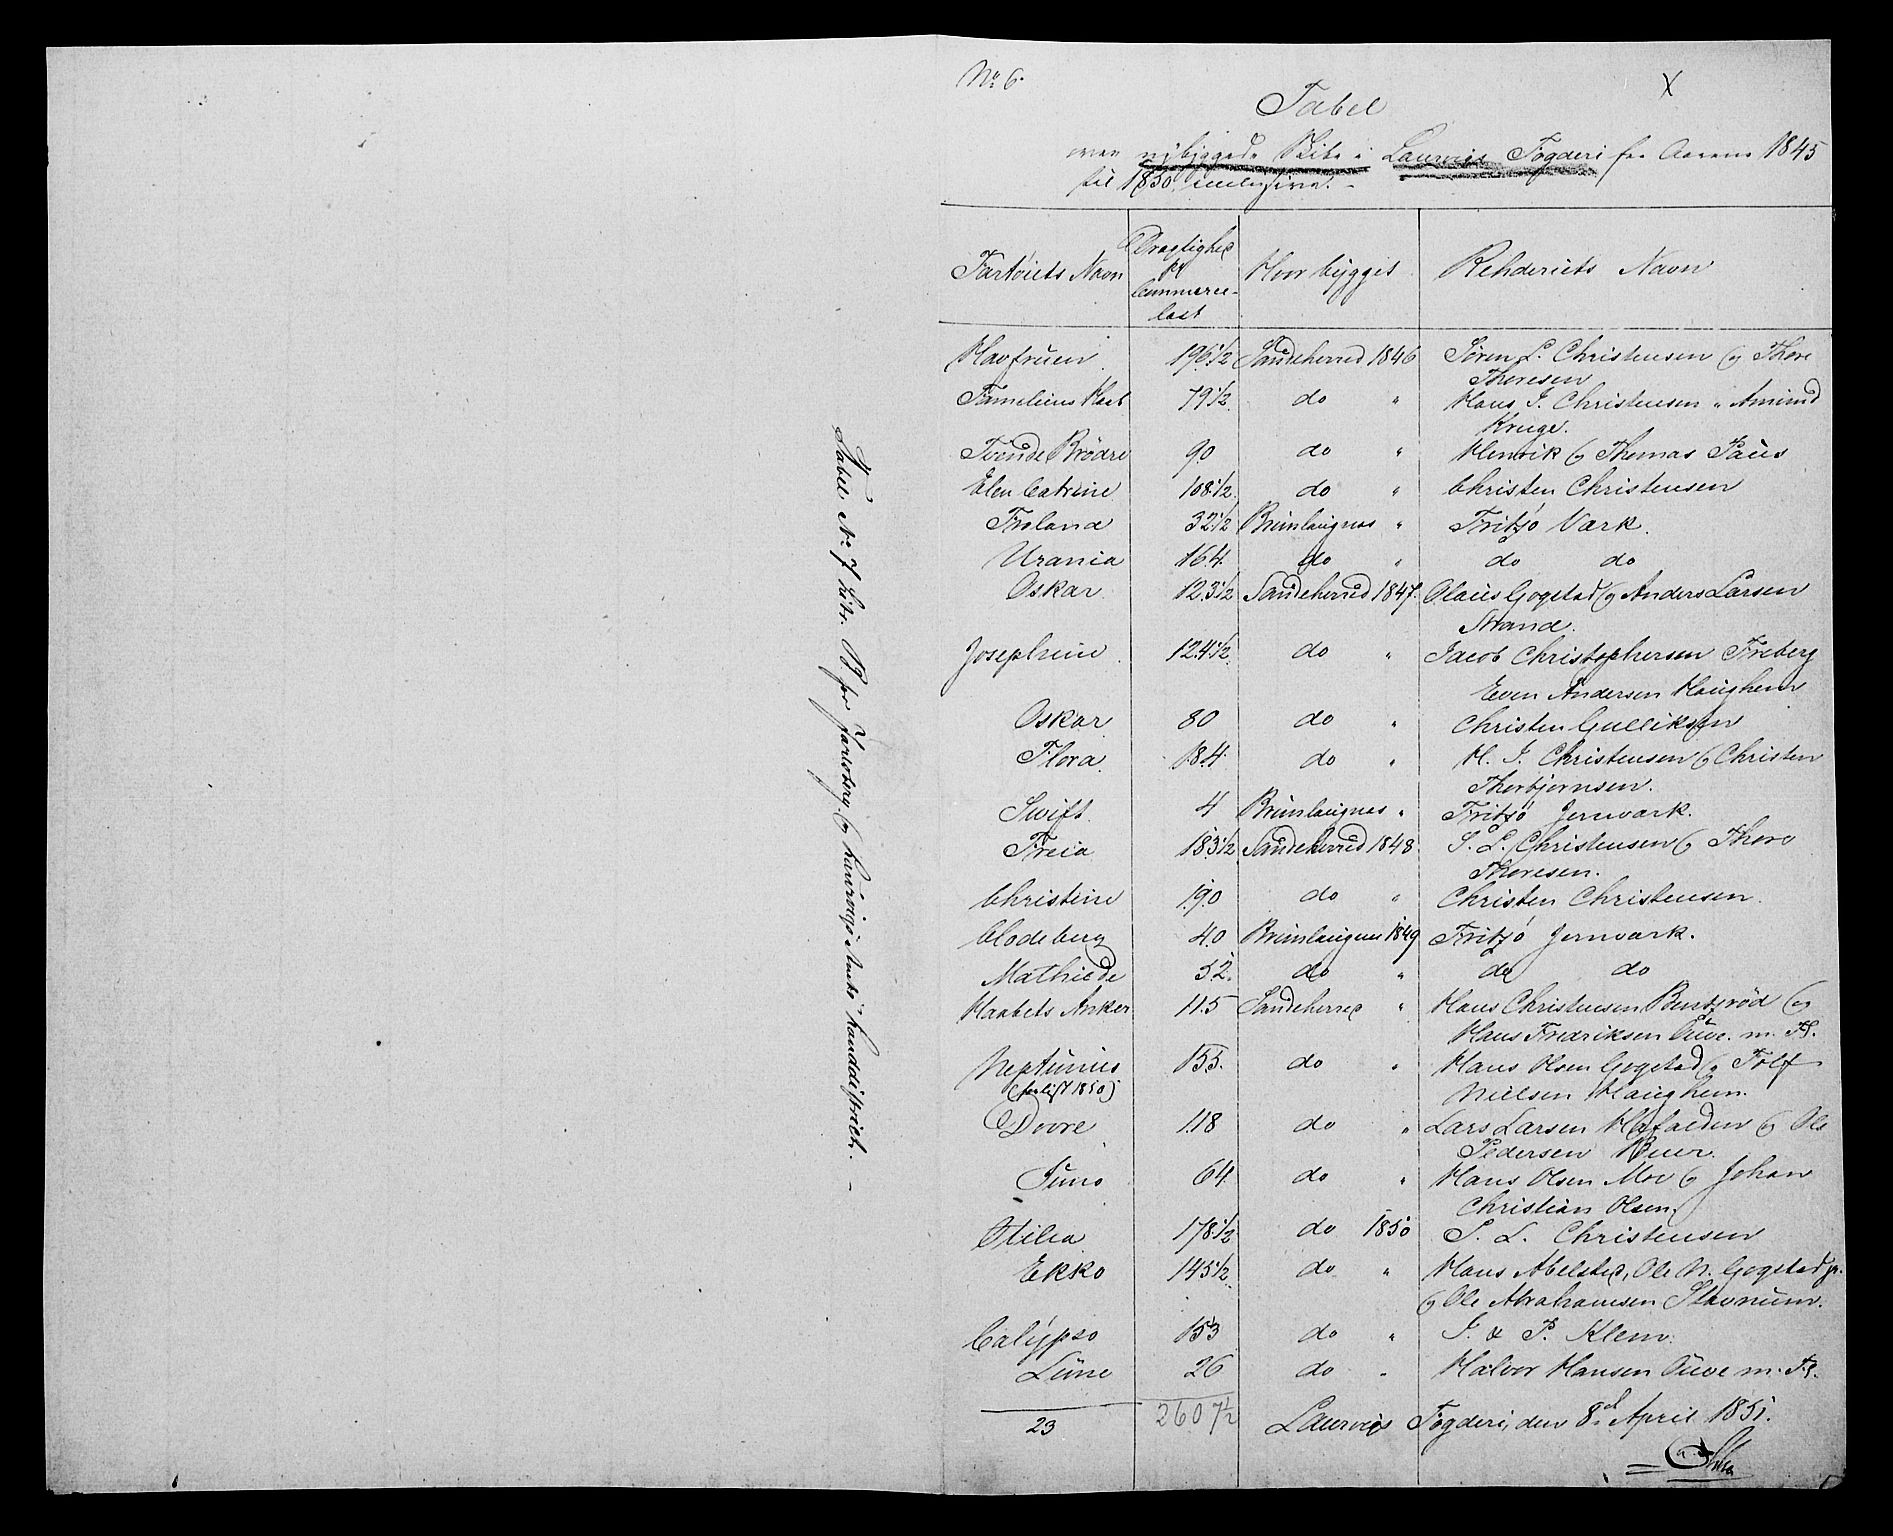 Tabel No 7 Litr. B for Jarlsberg og Laurvigs Amts Landdistrict.
No 6.
X
Tabel
over nybyggede Skibe i Laurvigs Fogderi fra Aarene 1845
til 1850 inclusive.
Fartöiets Navn | Drægtighed pr Commerce-last | Hvor bygget | Rehderiets Navn
Havfruen | 196 1/2 | Sandeherred 1846 | Sören L. Christensen og Thore
Thoresen
Familiens Haab | 79 1/2 | do " | Hans J. Christensen " Amund
Kruge.
Tvende Brödre | 90 | do " | Henrik og Thomas Paus
Elen Catrine | 108 1/2 | do " | Christen Christensen
Froland | 32 1/2 | Brunlaugnæs " | Fritzö Værk.
Urania | 164 | do " | do do
Oskar | 123 1/2 | Sandeherred 1847. | Olaus Gogstad og Anders Larsen
Strand.
Josephine | 124 1/2 | do " | Jacob Christophersen Freberg
Even Andersen Haughem
Oskar | 80 | do " | Christen Gulliksen
Flora | 184 | do " | H. J. Christensen og Christen
Thorbjørnsen.
Swift | 4 | Brunlaugnæs " | Fritzö Jernværk.
Freia | 183 1/2 | Sandeherred 1848. | S. L. Christensen og Thore
Thoresen.
Christine | 190 | do " | Christen Christensen.
Clodeberg | 40 | Brunlaugnæs 1849 | Fritzö Jernværk.
Mathilde | 52 | do " | do do
Haabets Anker | 115 | Sandeherred " | Hans Christensen Bentzröd og
Hans Fredriksen Ouve. m. Fl.
Neptunus | 155. | do " | Hans Olsen Gogstad og Tolf
(forlist 1850) | Nielsen Haughem.
Dovre | 118 | do " | Lars Larsen Hafalden og Ole
Pedersen Buer.
Juno | 64 | do " | Hans Olsen Moe og Johan
Christian Olsen.
Otilia | 178 1/2 | do 1850 | S. L. Christensen
Ekko | 145 1/2 | do " | Hans Abelsted, Ole N. Gogstad jr.
og Ole Abrahamsen Stavnum.
Calypso | 153 | do " | J. & P. Klem.
Lüne | 26 | do " | Halvor Hansen Ouve m. Fl.
23 | 2607 1/2 | Laurvigs Fogderi, den 8d April 1851.